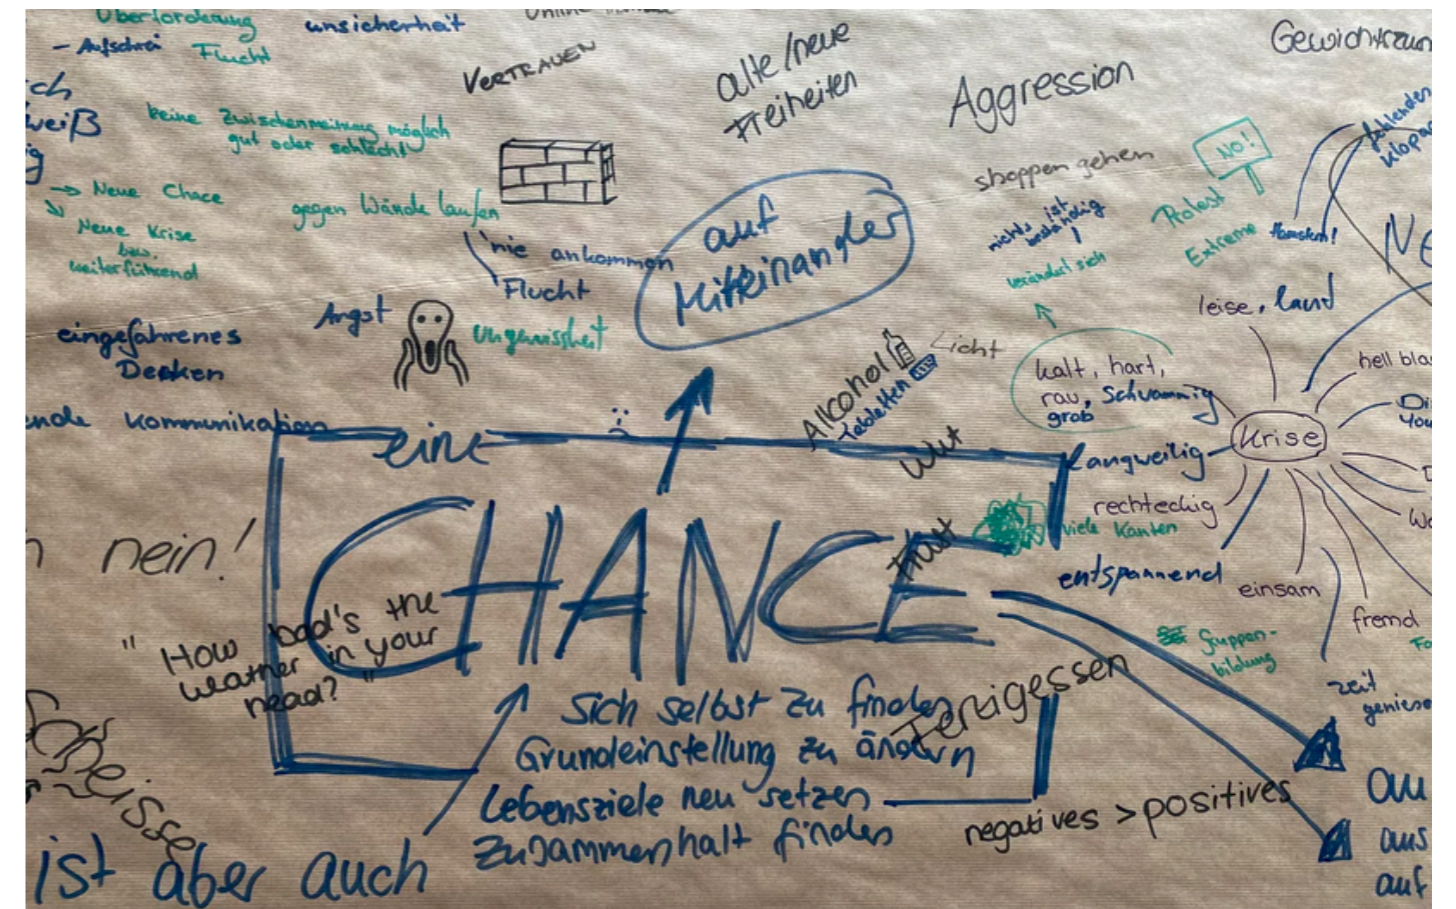 Überforderung
unsicherheit
- Aufschrei
Flucht
VERTRAUEN
alte/neue
Freiheiten
Aggression
ch
weiß
keine Zwischenmeinung möglich
gut oder schlecht
shoppen gehen
NO!
Protest
Extreme
→ Neue Chace
↘ Neue Krise
bzw.
weiterführend
gegen Wände laufen
nie ankommen
Flucht
auf
nichts ist
beständig
!
verändert sich
Hamstern!
leise, laut
Angst
Ungewissheit
eingefahrenes
Denken
Alkohol
Tabletten
Licht
kalt, hart,
rau, Schwammig
grob
hell bla
Krise
ende kommunikation
eine
CHANCE
Wut
Frust
langweilig
rechteckig
viele Kanten
entspannend
einsam
fremd
Gruppen-
bildung
zeit
nein!
"How bad's the
weather in your
head?"
Sich selbst zu finden
Grundeinstellung zu ändern
Lebensziele neu setzen
Zusammenhalt finden
Fertigessen
negatives > positives
Scheisse
ist aber auch
au
aus
auf